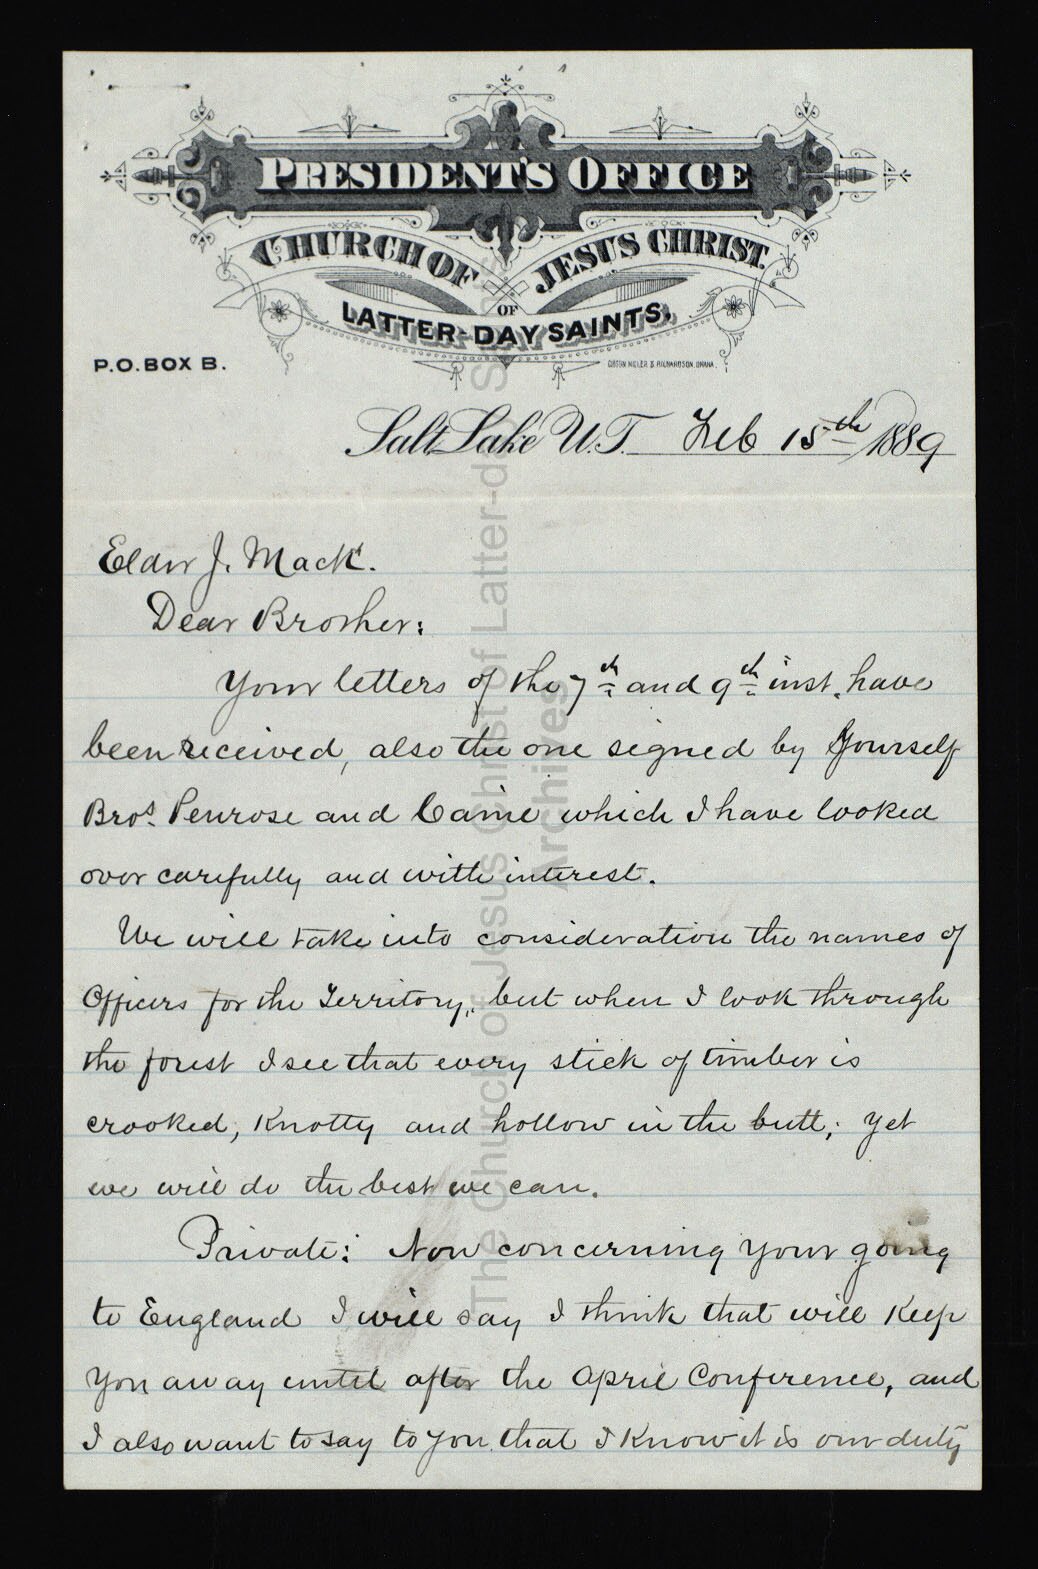 PRESIDENT'S OFFICE
CHURCH OF JESUS CHRIST
OF
LATTER-DAY SAINTS.
P.O. BOX B.
GIBSON MILLER & RICHARDSON, OMAHA.
Salt Lake U.T. Feb 15th 1889
Elder J. Mack.
Dear Brother:
Your letters of the 7th and 9th inst. have
been received, also the one signed by Yourself
Bros. Penrose and Caine which I have looked
over carefully and with interest.
We will take into consideration the names of
Officers for the Territory, but when I look through
the forest I see that every stick of timber is
crooked, Knotty and hollow in the butt; yet
we will do the best we can.
Private: Now concerning your going
to England I will say I think that will Keep
you away until after the April Conference, and
I also want to say to you that I Know it is our duty
The Church of Jesus Christ of Latter-day Saints
Archives